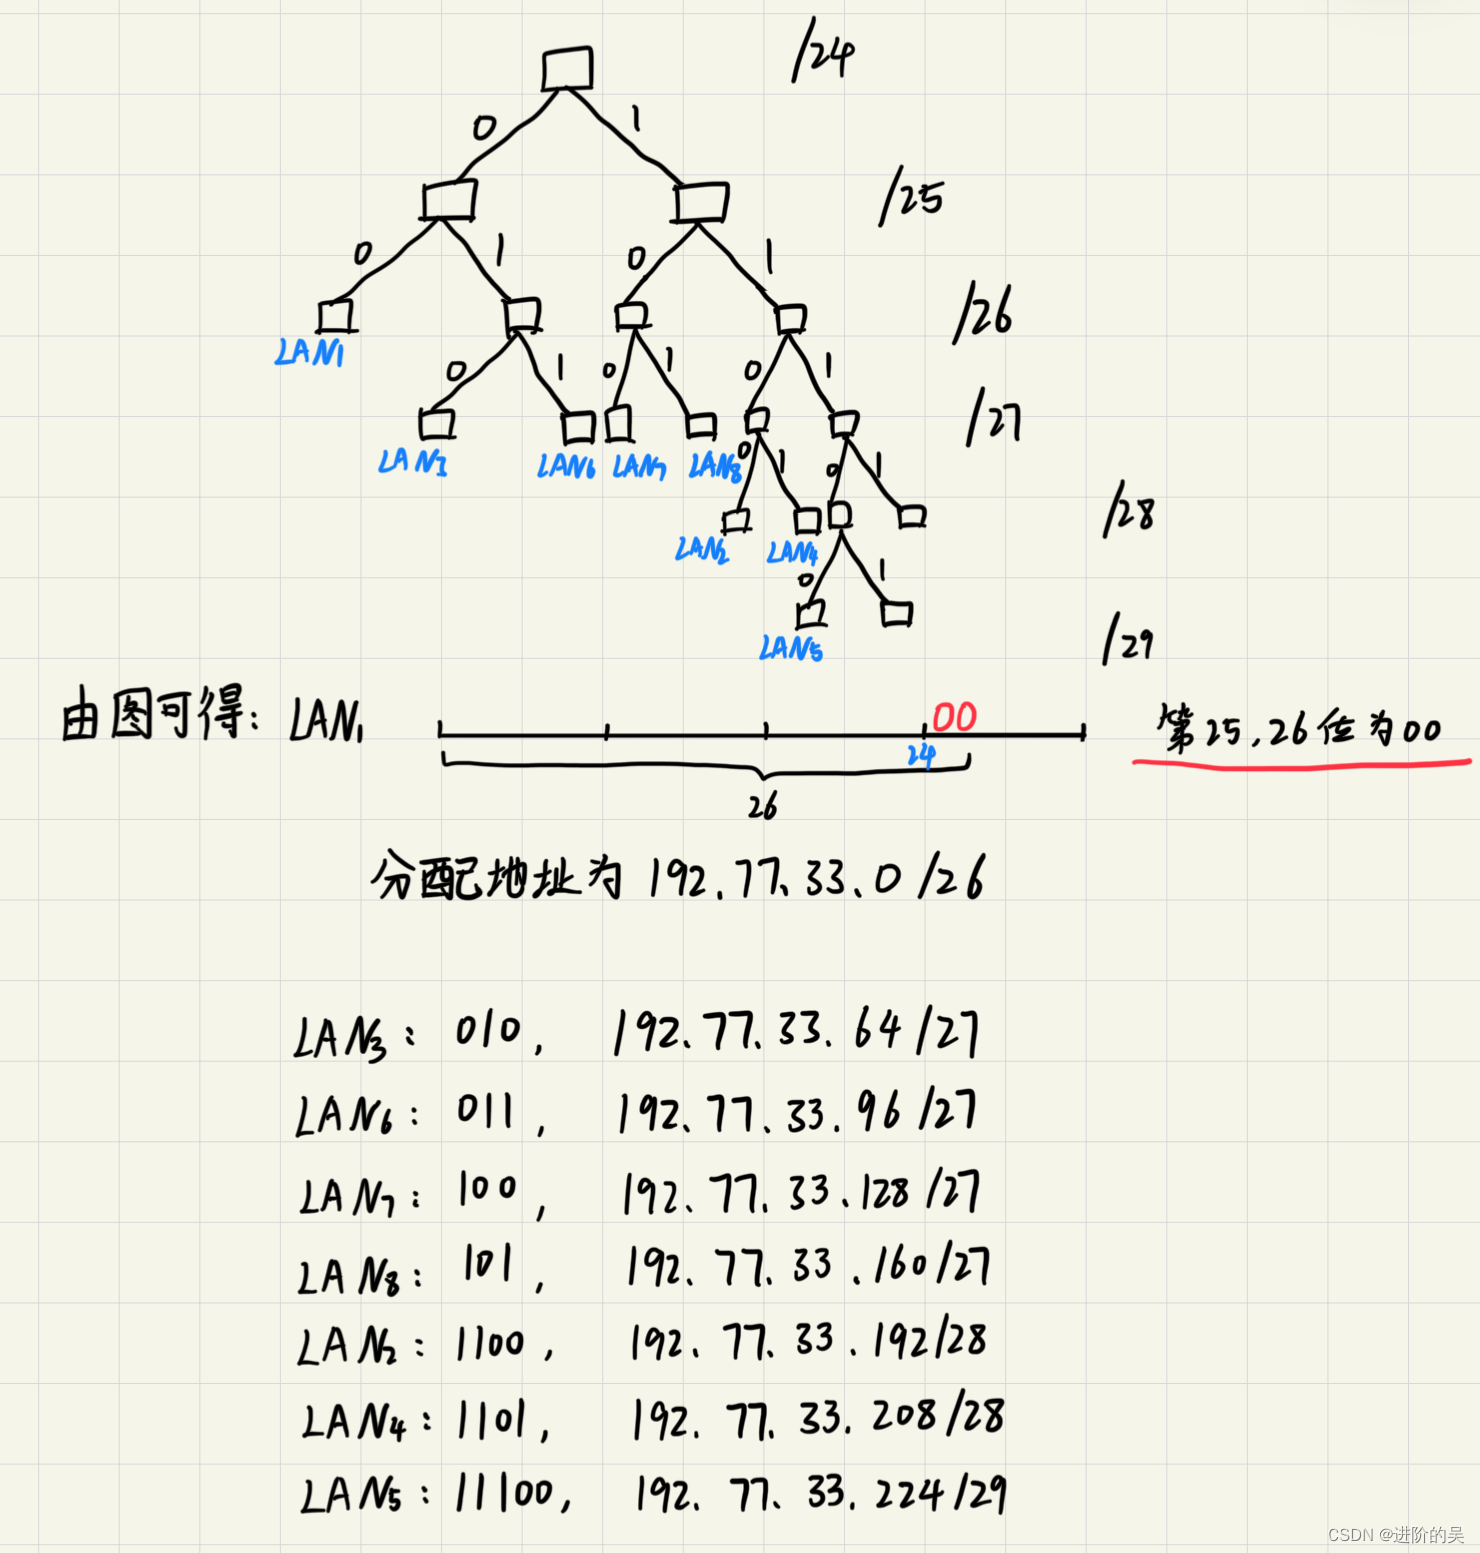 /24
0 1
/25
0 1 0 1
/26
LAN1
0 1 0 1 0 1
/27
LAN3 LAN6 LAN7 LAN8
0 1 0 1
/28
LAN2 LAN4
0 1
/29
LAN5
由图可得: LAN1 00 第25,26位为00
24
26
分配地址为 192.77.33.0/26
LAN3: 010, 192.77.33.64/27
LAN6: 011, 192.77.33.96/27
LAN7: 100, 192.77.33.128/27
LAN8: 101, 192.77.33.160/27
LAN2: 1100, 192.77.33.192/28
LAN4: 1101, 192.77.33.208/28
LAN5: 11100, 192.77.33.224/29
CSDN @进阶的吴